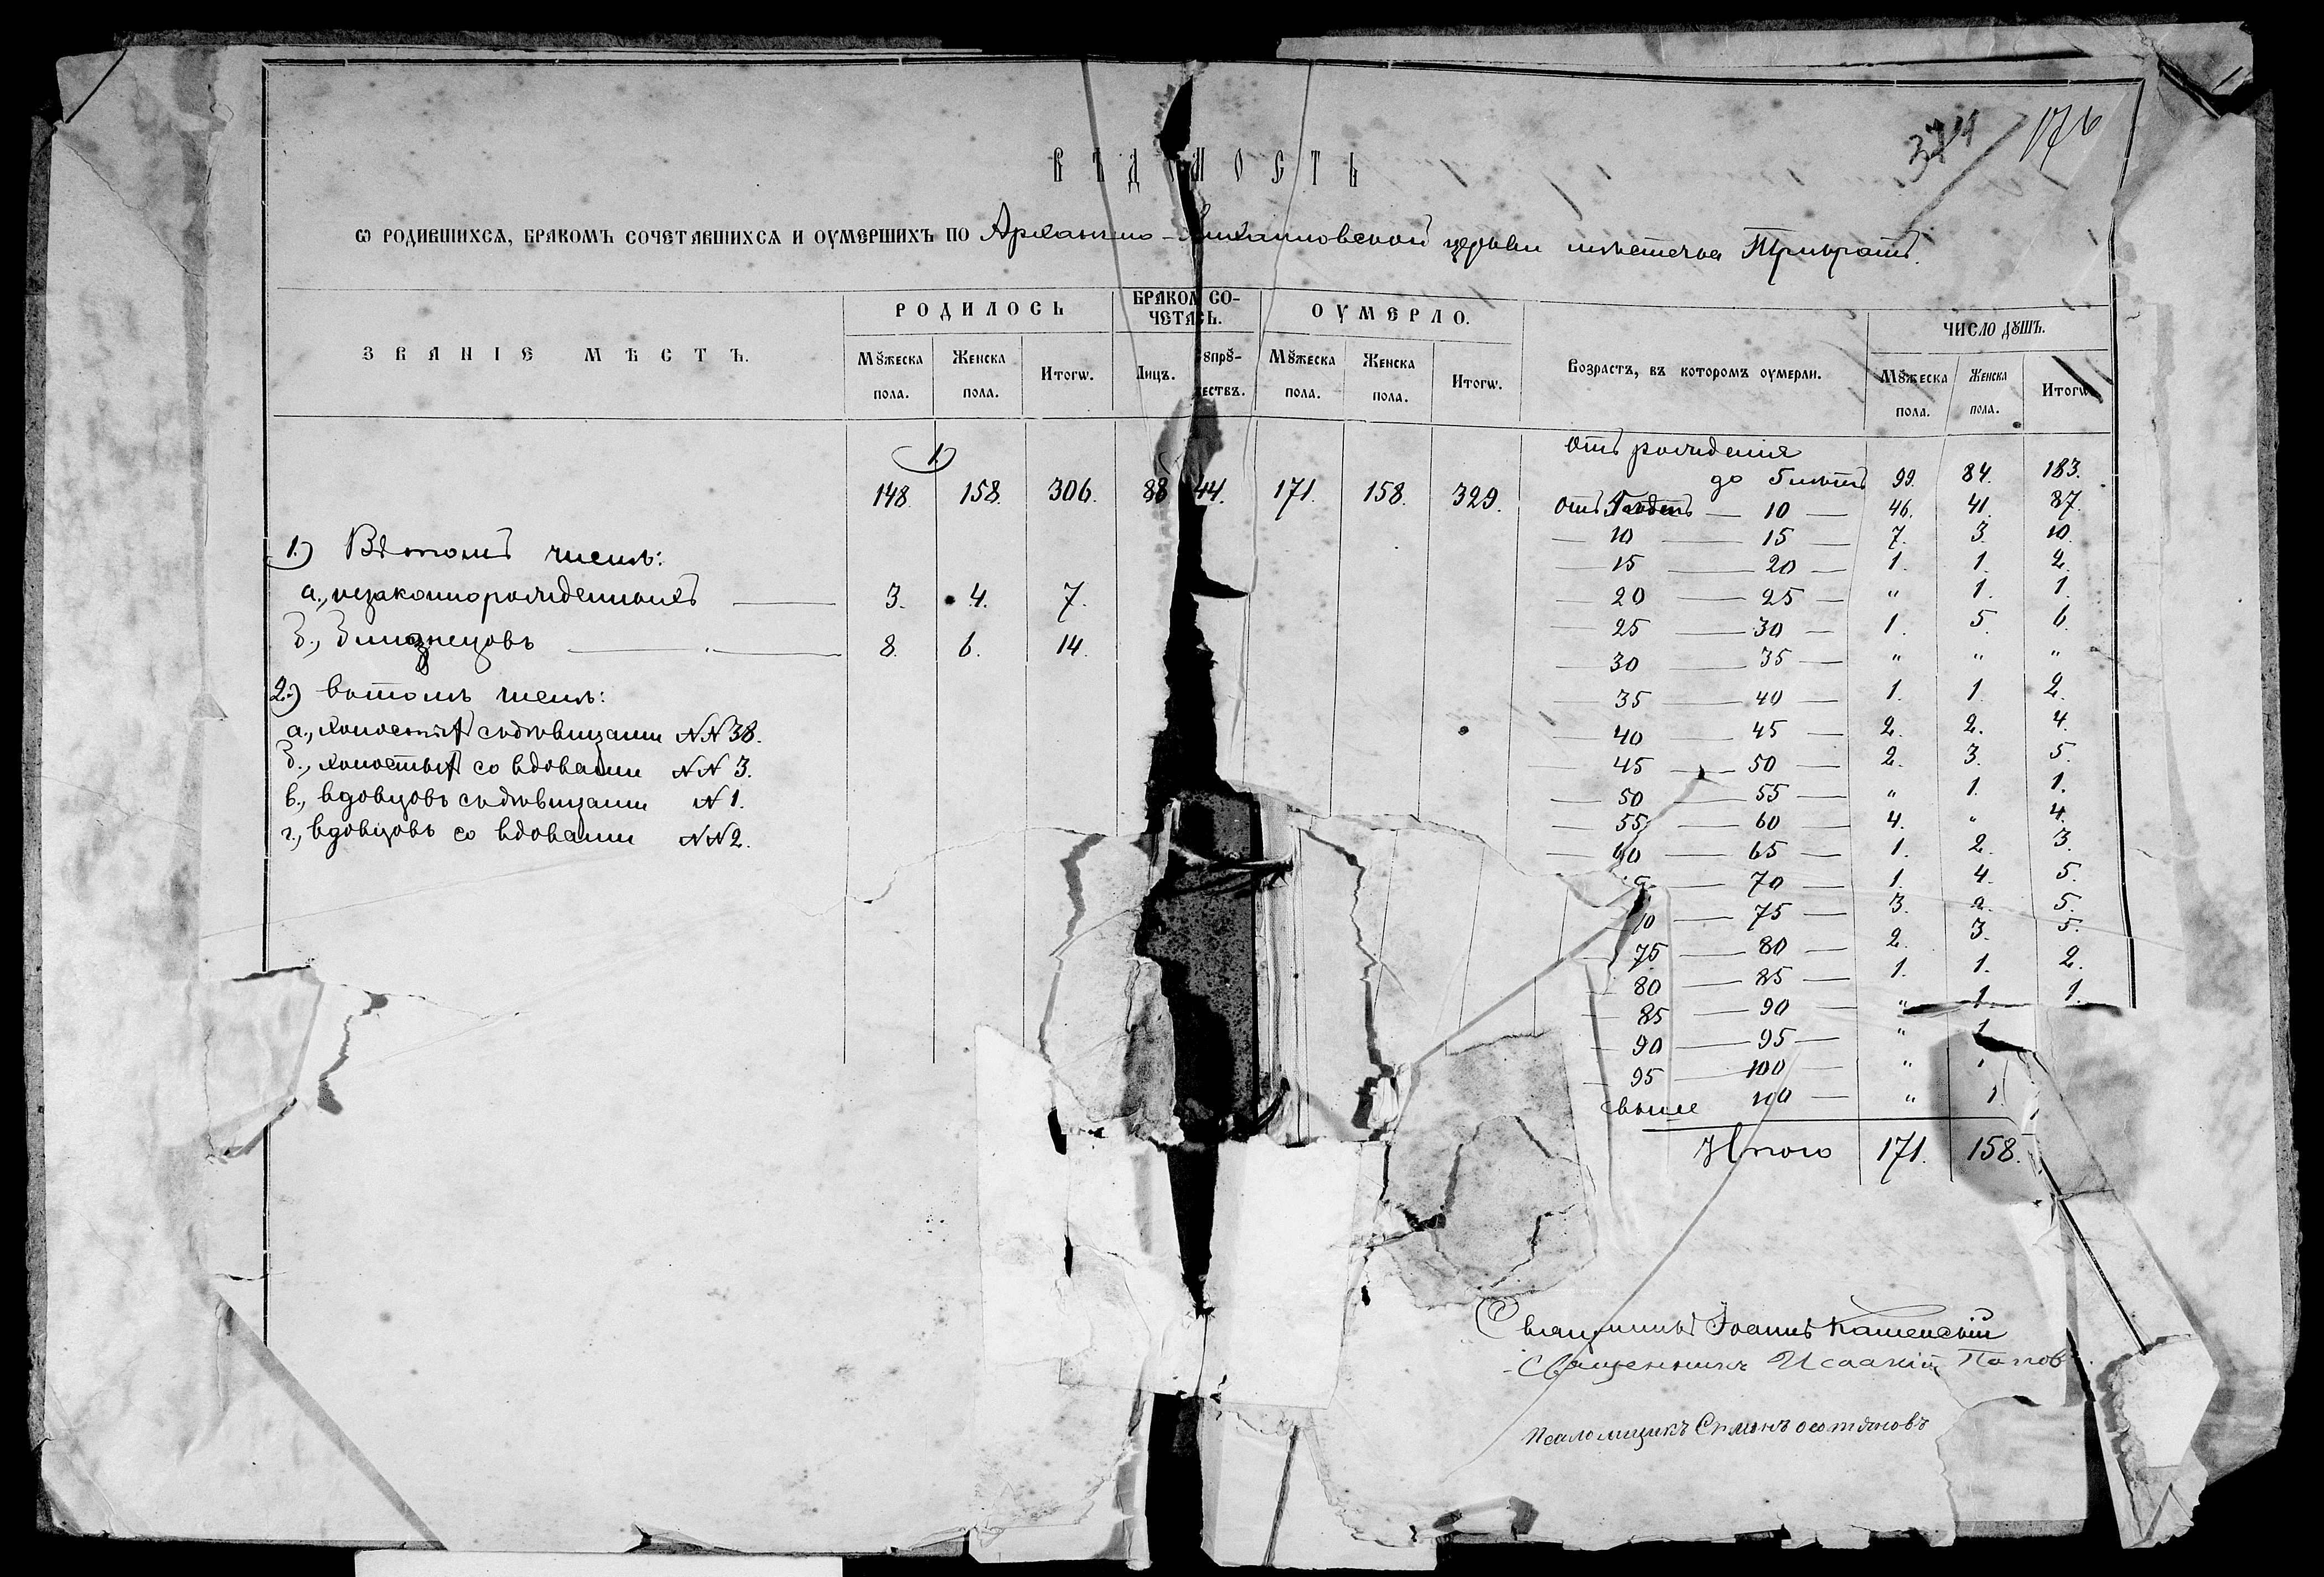 374 176
ВѢДОМОСТЬ
Ѡ РОДИВШИХСѦ, БРАКОМЪ СОЧЕТАВШИХСѦ И ОУМЕРШИХЪ ПО Архангело-Михаиловской церкви мѣстечка
ЗВАНІЕ МѢСТЪ.
РОДИЛОСЬ
БРАКОМ СО-
ЧЕТАСЬ.
ОУМЕРЛО.
Возрастъ, въ которомъ оумерли.
ЧИСЛО ДꙊШЪ.
Мꙋжеска пола.
Женска пола.
Итогѡ.
Лицъ.
Мꙋжеска пола.
Женска пола.
Итогѡ.
Мꙋжеска пола.
Женска пола.
Итогѡ
1)
148. 158. 306. 88 44. 171. 158. 329.
отъ рожденія
до 5 лѣтъ 99. 84. 183.
отъ — 10 — 46. 41. 87.
— 10 — 15 — 7. 3. 10.
— 15 — 20 — 1. 1. 2.
— 20 — 25 — " 1. 1.
— 25 — 30 — 1. 5. 6.
— 30 — 35 — " " "
— 35 — 40 — 1. 1. 2.
— 40 — 45 — 2. 2. 4.
— 45 — 50 — 2. 3. 5.
— 50 — 55 — " 1. 1.
— 55 — 60 — 4. " 4.
— 60 — 65 — 1. 2. 3.
— 70 — 1. 4. 5.
— 75 — 3. 2. 5.
— 75 — 80 — 2. 3. 5.
— 80 — 85 — 1. 1. 2.
— 85 — 90 — " 1. 1.
— 90 — 95 — " 1
— 95 — 100 — "
свыше 100 — " 1
Итого 171. 158.
1.) Въ томъ числѣ:
а., незаконнорожденныхъ 3. 4. 7.
б., близнецовъ 8. 6. 14.
2.) въ томъ числѣ:
а., холостыхъ съ дѣвицами NN 38.
б., холостыхъ со вдовами NN 3.
в., вдовцовъ съ дѣвицами N 1.
г., вдовцовъ со вдовами NN 2.
Священникъ Іоаннъ Каменскій
Священникъ Исаакій Попов
Псаломщикъ